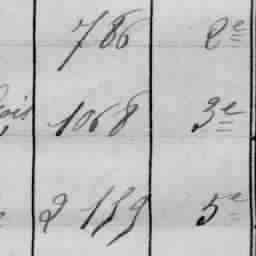 786 2e
ois 1068 3e
2 159 5e